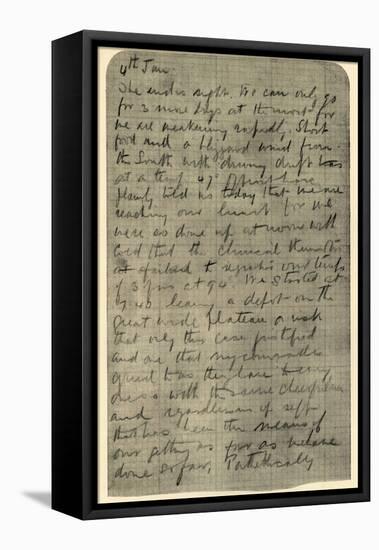 4th Jan.
The end is in sight. We can only go
for 3 more days at the most for
we are weakening rapidly. Short
food and a blizzard wind from
the South with driving drift
at a temp 47° of frost have
plainly told us today that we are
reaching our limit for we
were so done up at noon with
cold that the clinical thermom
failed to register our temps
of 3 men at 94. We started at
7 40 leaving a depot on the
great wide plateau a risk
that only this case justified
and one that my comrades
agreed to as they have to every
one so with the same cheerfulness
and regardlessness of self
that has been the means of
our getting as far as we have
done so far, Pathetically